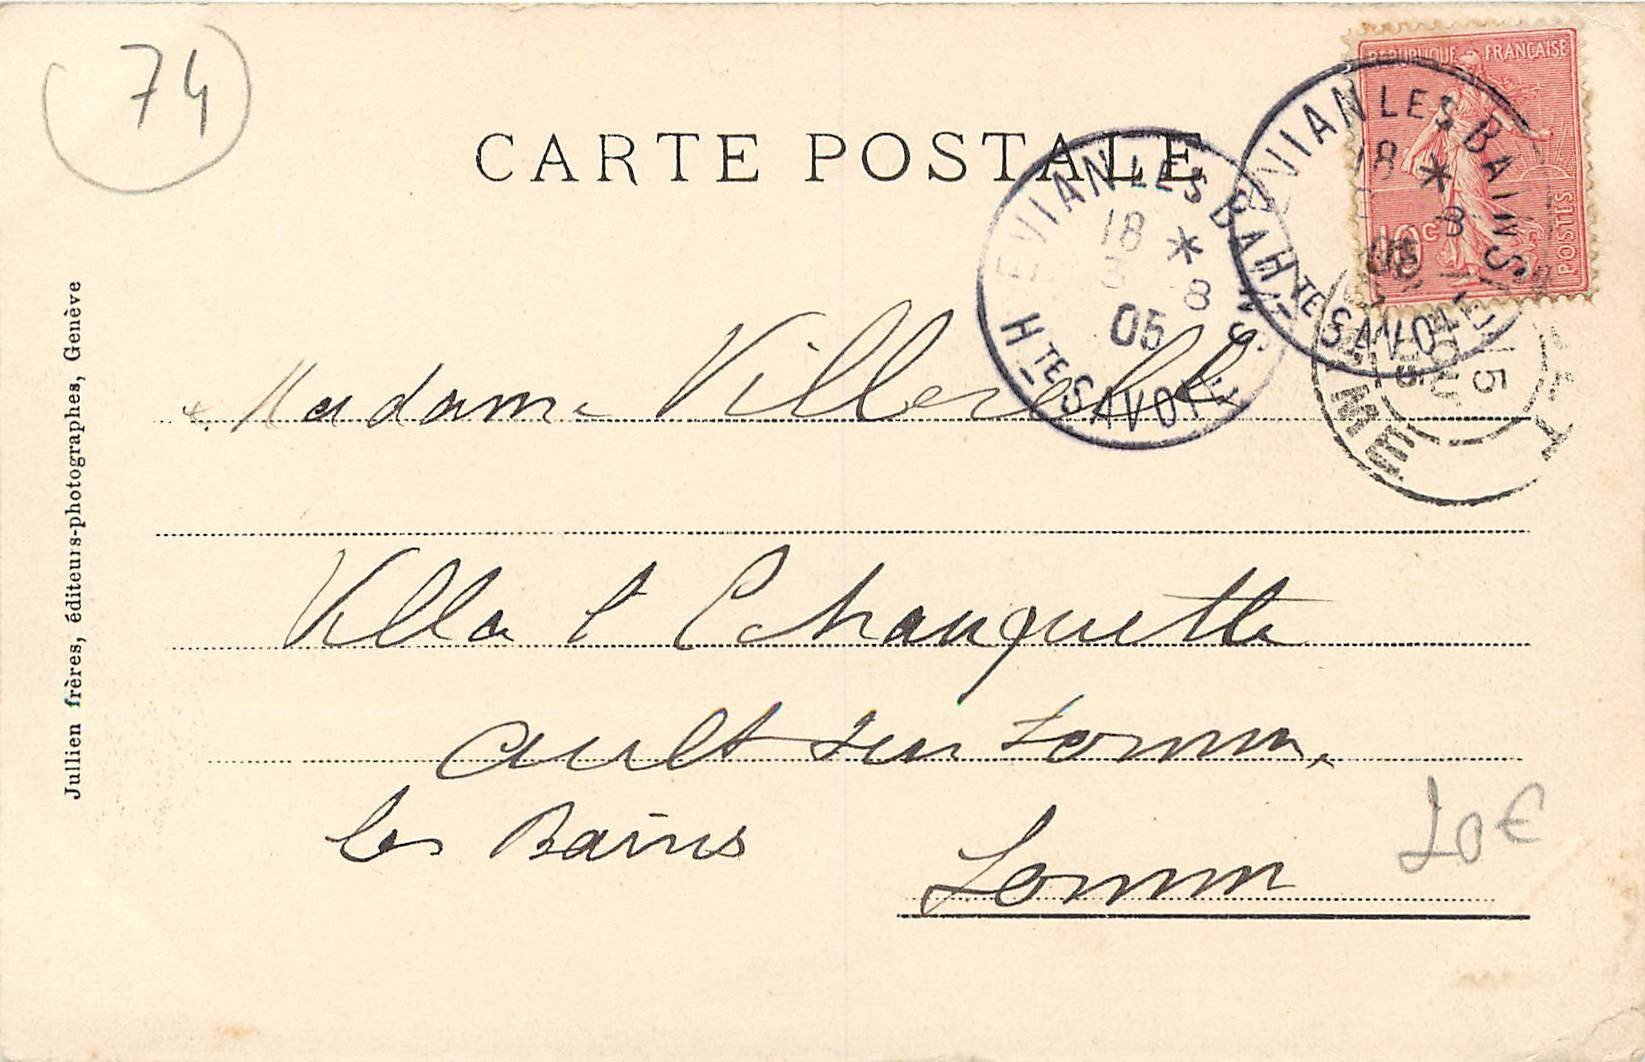 74
CARTE POSTALE
REPUBLIQUE FRANÇAISE
10c
POSTES
EVIAN LES BAINS
18 * 8
05
Hte SAVOIE
EVIAN LES BAINS
18 * 8
05
Hte SAVOIE
15
Madame
Villa l'Echauguette
Ault sur Somme,
les Bains
Somme
20€
Jullien frères, éditeurs-photographes, Genève